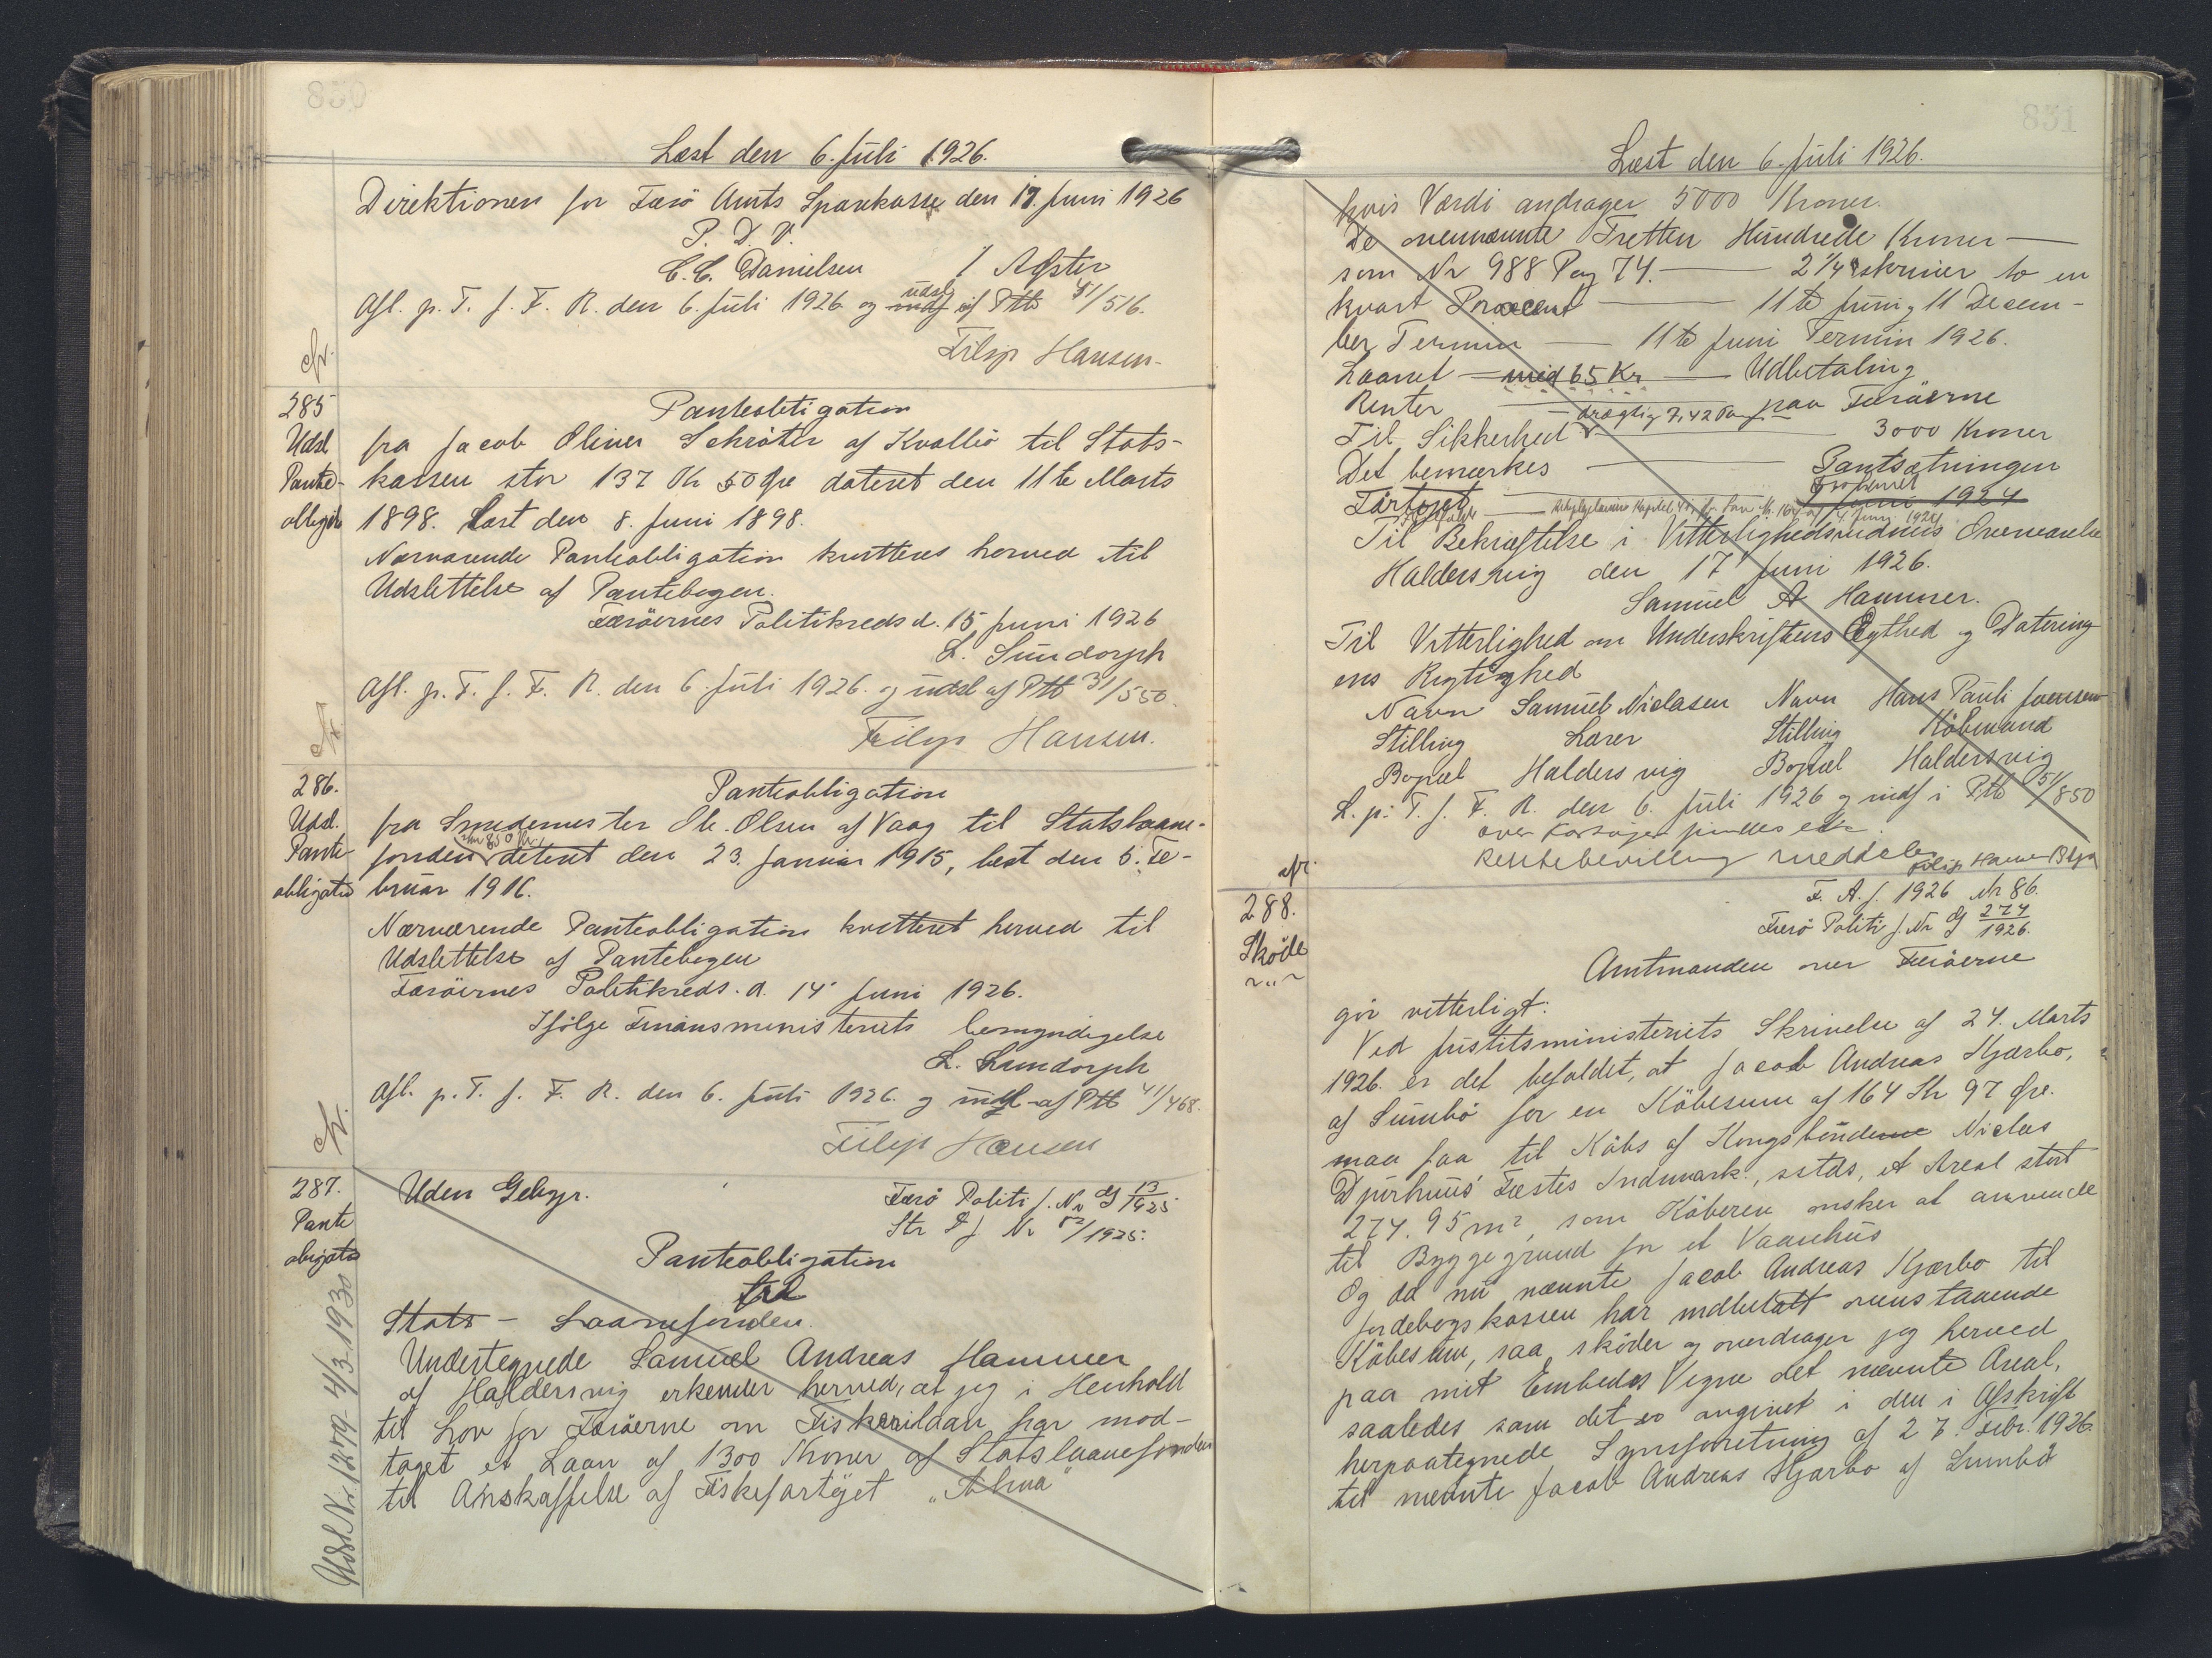 850
Læst den 6. Juli 1926.
Direktionen for Færö Amts Sparekasse den 17. Juni 1926
P. D. V.
C. C. Danielsen / A
Afl. p. T. f. F. R. den 6. Juli 1926 og indf udsl af Ptb 41/516.
Filip Hansen.
285
Udsl.
Pante-
obligat
Panteobligation
fra Jacob Oliver Schröter af Kvalbö til Stats-
kassen stor 137 Kr 50 Øre dateret den 11te Marts
1898. Læst den 8. Juni 1898.
Nærværende Panteobligation kvitteres herved til
Udslettelse af Pantebogen.
Færöernes Politikreds d. 15 Juni 1926
L. Sundorph
Afl. p. T. f. F. R. den 6. Juli 1926. og udsl af Ptb 31/550.
Filip Hansen.
286.
Udsl.
Pante
obligatio
Panteobligation
fra Smedemester Ole Olsen af Vaag til Statslaane-
fonden stor 850 Kr, dateret den 23. Januar 1915, læst den 5. Fe-
bruar 1916.
Nærværende Panteobligation kvitteret herved til
Udslettelse af Pantebogen
Færöernes Politikreds. d. 14 Juni 1926.
Ifölge Finansministeriets bemyndigelse
L. Sundorph
Afl. p. T. f. F. R. den 6. Juli 1926. og udsl af Ptb 41/468.
Filip Hansen
287.
Pante
obligatio
Udsl Nr. 1279 - 4/3 1930
Uden Gebyr.
Færö Politi J. Nr G 13/1925
Str F J Nr 52/1925.
Panteobligation
til
Stats - Laanefonden.
Undertegnede Samuel Andreas Hammer
af Haldersvig erkender herved, at jeg i Henhold
til Lov for Færöerne om Fiskerilaan har mod-
taget et Laan af 1300 Kroner af Statslaanefonden
til Anskaffelse af Fiskefartöjet „Alma"
831
Læst den 6. Juli 1926.
hvis Værdi andrager 5000 Kroner.
De ovennævnte Tretten Hundrede Kroner —
som Nr 988 Pag 74. — 2 1/4 skriver to en
kvart Procent — 11te Juni og 11 Decem-
ber Termin — 11te Juni Termin 1926.
Laanet — med 65 Kr — Udbetaling
Renter — paa Færöerne
Til Sikkerhed — drægtig 7,42 Tons — 3000 Kroner
Det bemærkes — Pantsætningen
Fartöjet — 1924
Til Bekræftelse i Vitterlighedsvidners Overværelse
Haldersvig den 17 Juni 1926.
Samuel A Hammer.
Til Vitterlighed om Underskriftens Ægthed og Datering
ens Rigtighed
Navn Samuel Niclasen Navn Hans Pauli Joensen
Stilling Lærer Stilling Köbmand
Bopæl Haldersvig Bopæl Haldersvig
L. p. T. f. F. R. den 6. Juli 1926 og indf i Ptb 51/850
Rettebevilling meddeles
Filip Hansen
288.
Sköde
F. A. J. 1926 Nr 86.
Færö Politi J. Nr G 274/1926.
Amtmanden over Færöerne
gör vitterligt:
Ved Justitsministeriets Skrivelse af 24. Marts
1926. er det befaldet, at Jacob Andreas Kjærbo,
af Sumbö for en Köbesum af 164 Kr 97 Øre.
maa faa til Köbs af Kongsbonderne Niclas
Djurhuus' Fæstes Indmark, sstds, et Areal stort
274. 95 m², som Köberen ønsker at anvende
til Byggegrund for et Vaanhus
Og da nu nævnte Jacob Andreas Kjærbo til
Jordebogskassen har indbetalt ovenstaaende
Köbesum, saa sköder og overdrager jeg herved
paa mit Embeds Vegne det nævnte Areal,
saaledes som det er angivet i den i Afskrift
herpaategnede Synsforretning af 27. Febr. 1926.
til nævnte Jacob Andreas Kjærbo af Sumbö